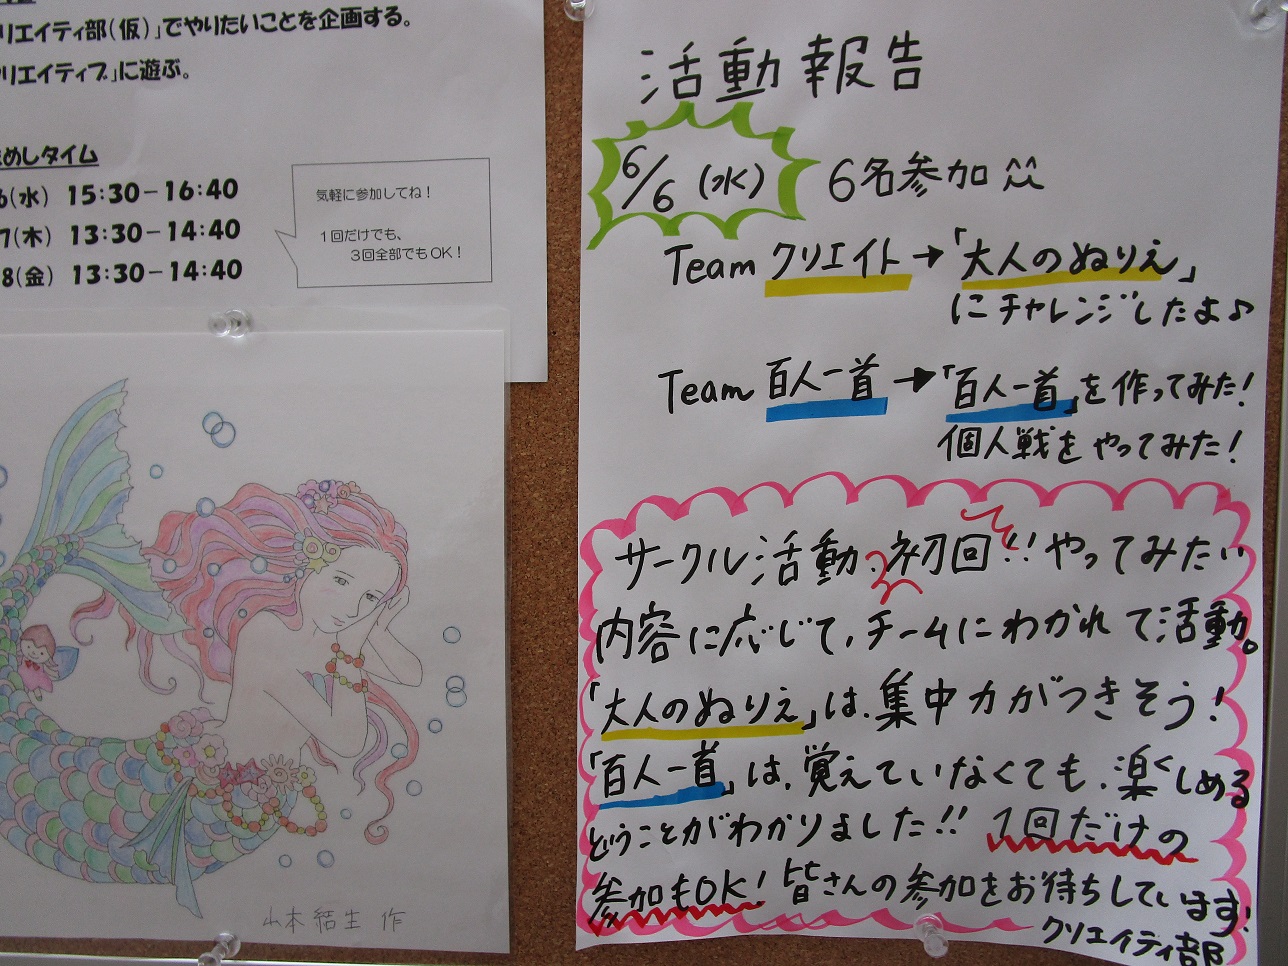 リエイティ部(仮)」でやりたいことを企画する。
リエイティブ」に遊ぶ。
めしタイム
6(水) 15:30－16:40
7(木) 13:30－14:40
8(金) 13:30－14:40
気軽に参加してね！
1回だけでも、
3回全部でもOK！
山本結生 作
活動報告
6/6(水) 6名参加
Team クリエイト→「大人のぬりえ」
にチャレンジしたよ♪
Team 百人一首→「百人一首」を作ってみた!
個人戦をやってみた!
サークル活動、初回!!やってみたい
内容に応じて、チームにわかれて活動。
「大人のぬりえ」は、集中力がつきそう!
「百人一首」は、覚えていなくても、楽しめる
ということがわかりました!! 1回だけの
参加もOK! 皆さんの参加をお待ちしています!
クリエイティ部